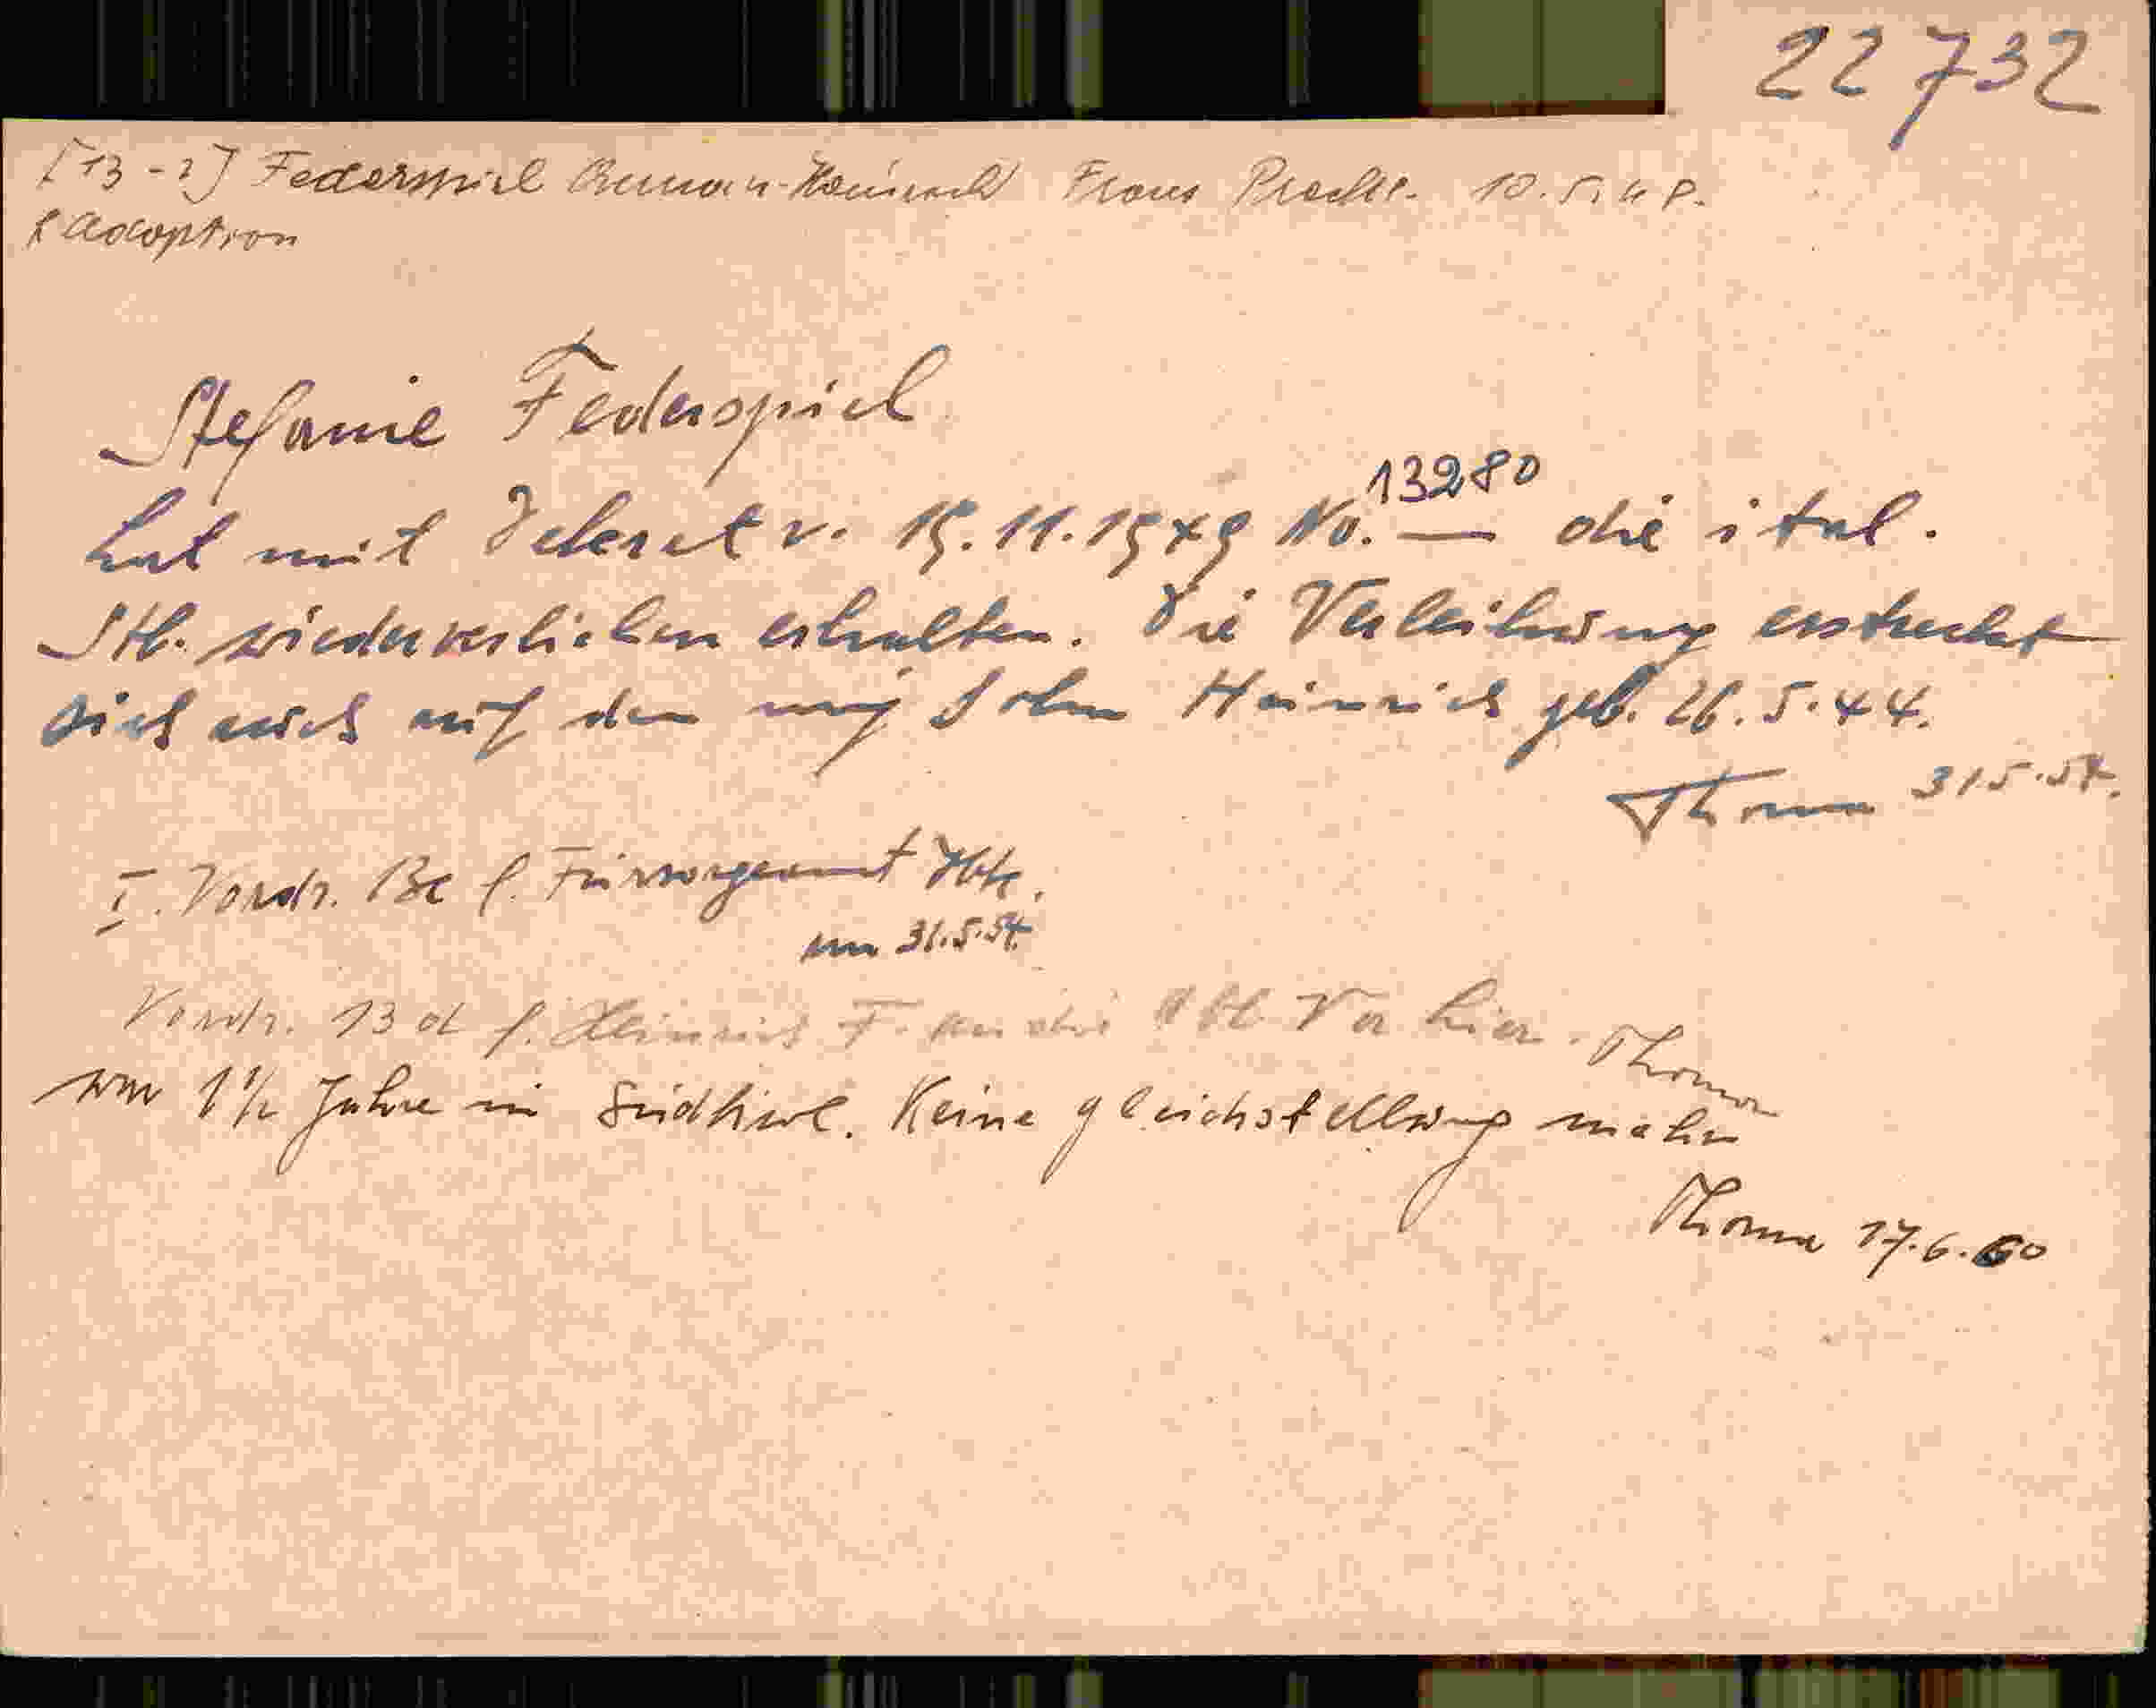 22732
[13-2] Federspiel Heinrich Franz 10.5.48.
f Adoption
Stefanie Federspiel
hat mit Dekret v. 15.11.1949 No. 13280 die ital.
Stb. wiederverliehen erhalten. Die Verleihung erstreckt
sich auch auf den mj Sohn Heinrich geb. 26.5.44.
Thoma 31.5.54.
I. Vordr. 13c f. Fürsorgeamt
am 31.5.54.
Vordr. 13 d f. Heinrich F. an die Abt Va hier. Thoma
war 1½ Jahre in Südtirol. Keine gleichstellung mehr
Thoma 17.6.60